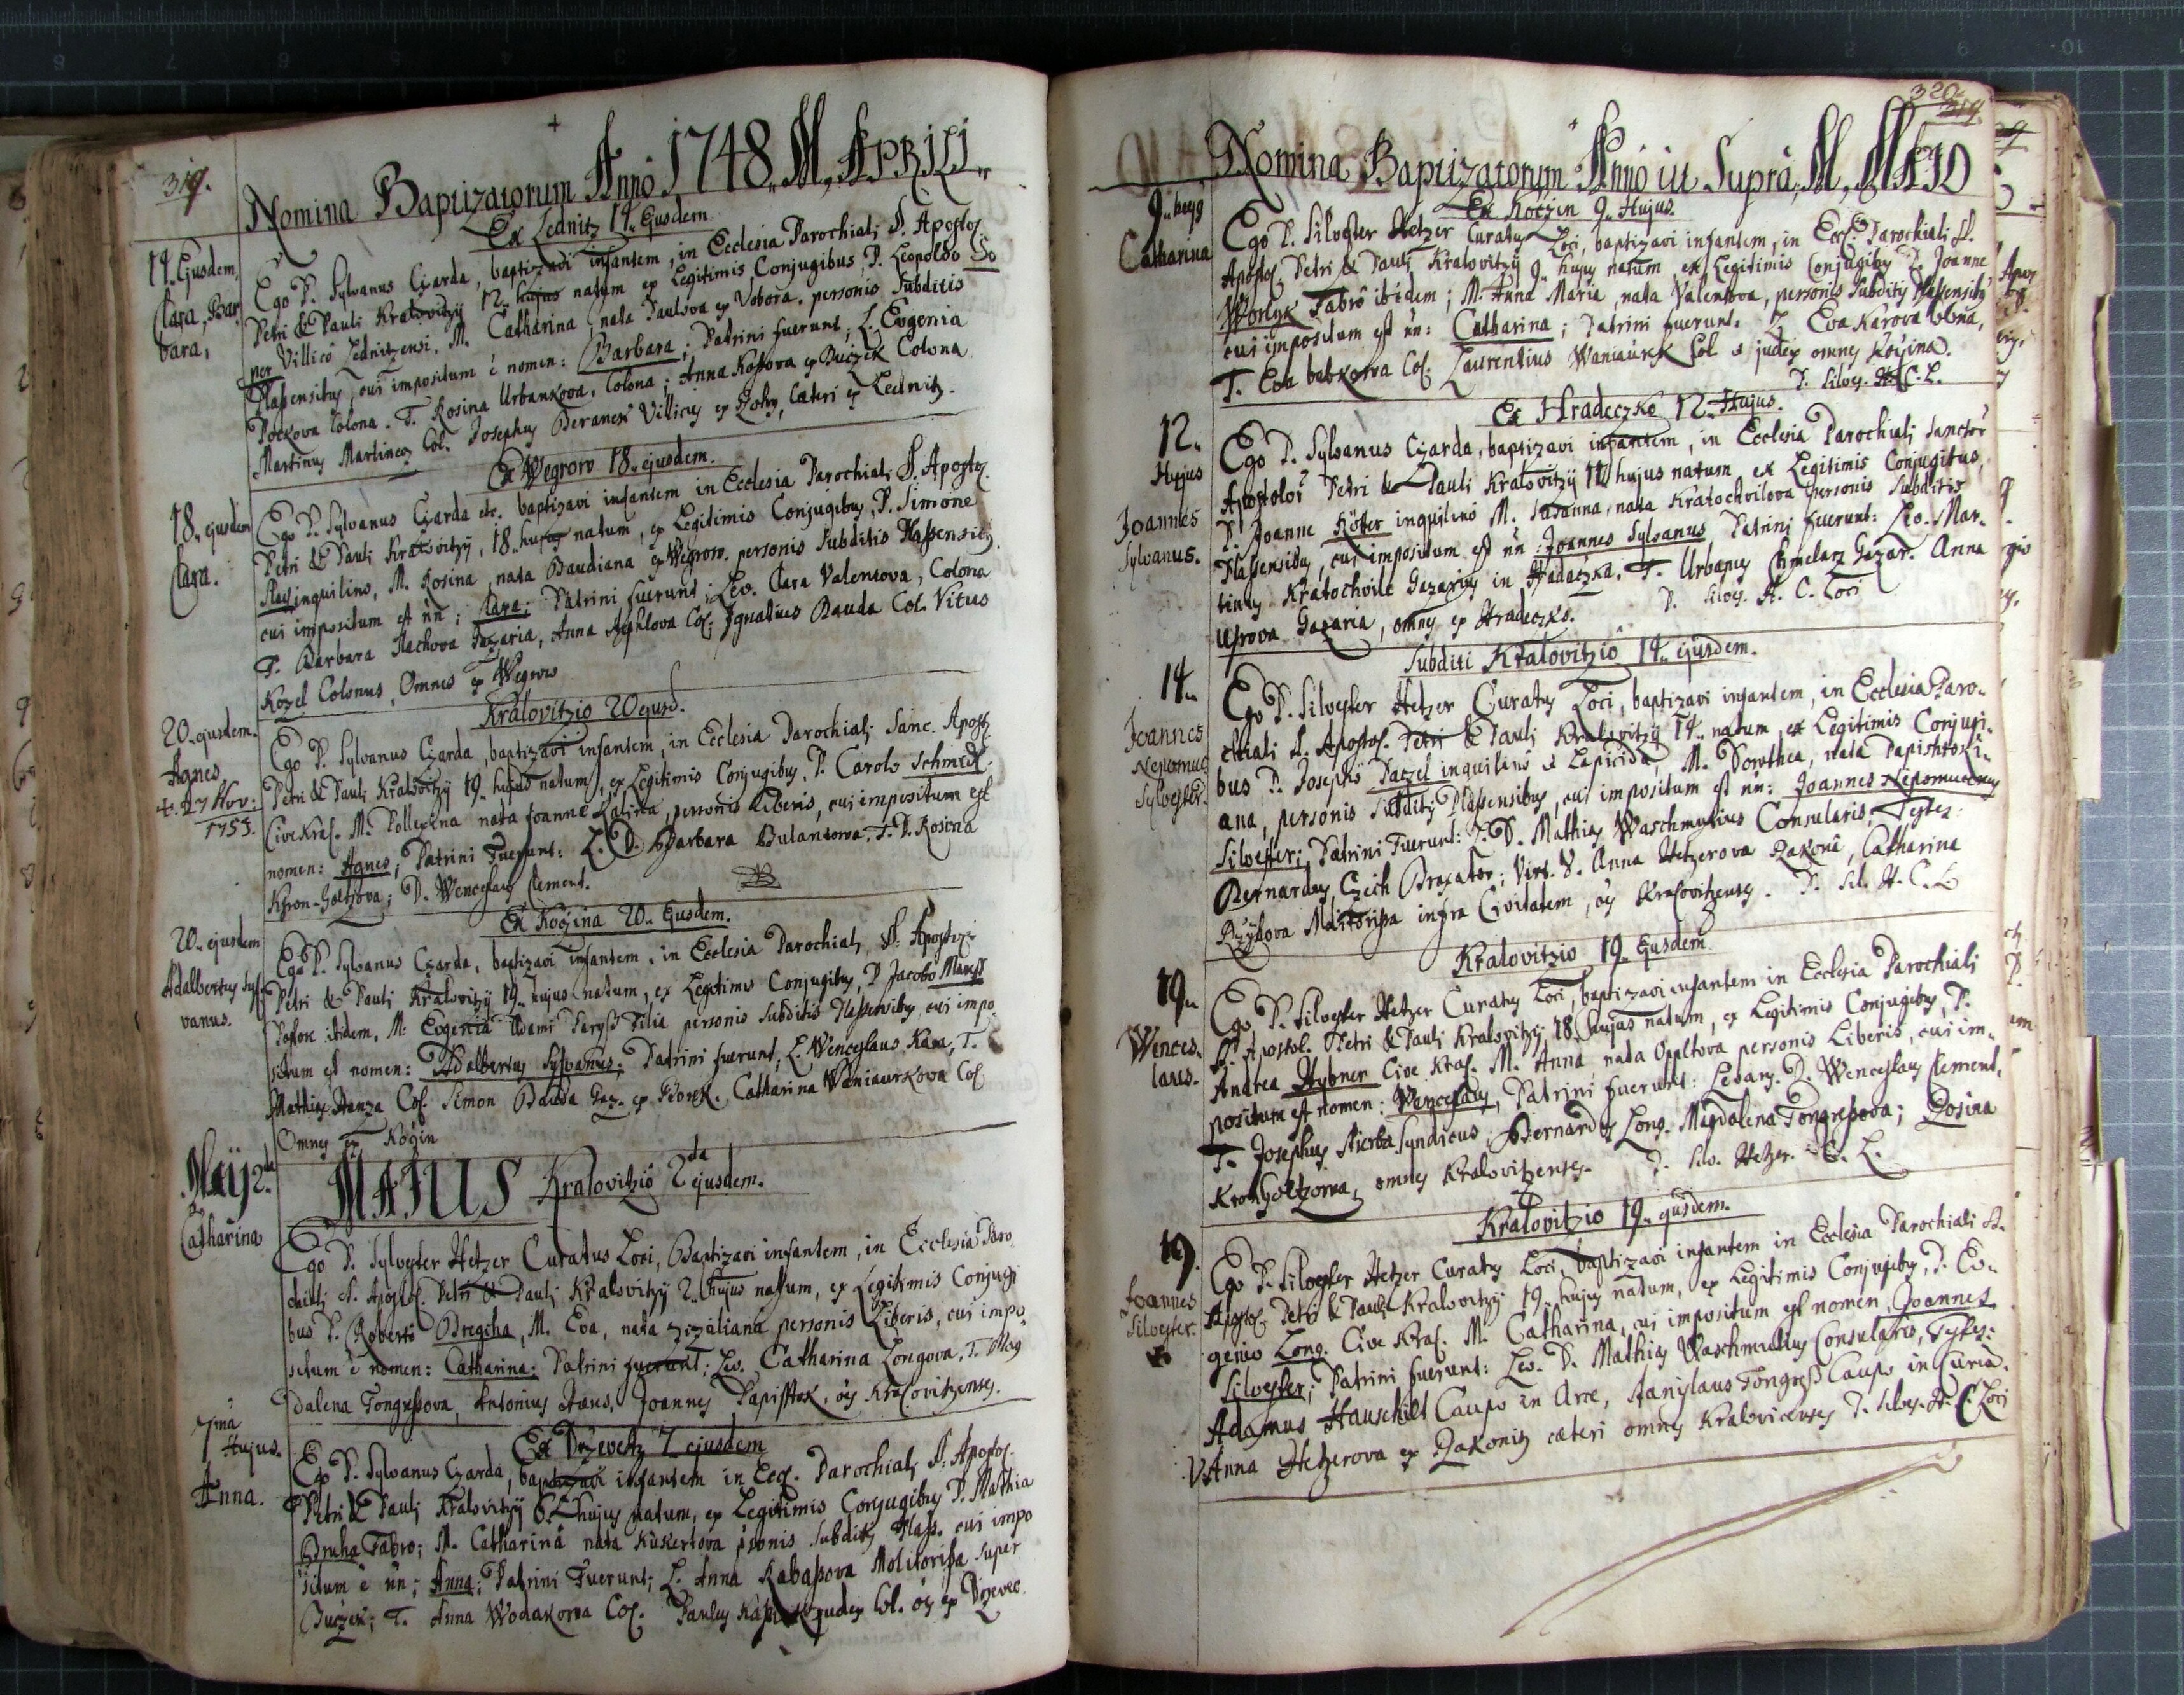 319.
Nomina Baptizatorum Anno 1748 M. APRILI
Ex Lednitz 14. Ejusdem.
14. Ejusdem,
Clara, Bar
bara,
Ego P. Sylvanus Czarda, baptizavi infantem, in Ecclesia Parochiali S. Apostol.
Petri & Pauli Kralovitzij 12. hujus natum ex Legitimis Conjugibus, P. Leopoldo So
per Villico Lednitzensi, M. Catharina nata Paulova ex Vobora, personis Subditis
Plassensibus, cui impositum ē nomen: Barbara; Patrini fuerunt, L. Evgenia
Pockova Colona. T. Rosina Urbankova, Colona; Anna Kossova ex Buczek Colona
Martinus Martinec Col. Josephus Beranek Villicus ex Lohy, Cæteri ex Lednitz.
Ex Wegrow 18. ejusdem.
18. ejusdem
Clara.
Ego P. Sylvanus Czarda etc. baptizavi infantem in Ecclesia Parochiali S. Apostol.
Petri & Pauli Kralovitzij, 18. hujus natum, ex Legitimis Conjugibus, P. Simone
inquilino, M. Rosina, nata Baudiana ex Wegrow. personis Subditis Plassensibus,
cui impositum est n̄n: Clara; Patrini fuerunt; Lev. Clara Valentova, Colona
T. Barbara Machova Gazaria, Anna Col. Ignatius Bauda Col. Vitus
Kozel Colonus, Omnes ex Wegrow
Kralovitzio 20 ejusd.
20. ejusdem.
Agnes
+. 27 Nov:
1753.
Ego P. Sylvanus Czarda, baptizavi infantem, in Ecclesia Parochiali Sanc. Apost.
Petri & Pauli Kralovitzij 19. hujus natum, ex Legitimis Conjugibus, P. Carolo Schmidt
Cive Kral. M. nata Joanne personis Liberis, cui impositum est
nomen: Agnes; Patrini Fuerunt: L. D. Barbara Bulantova, T. D. Rosina
Kron-Goltzova; D. Wenceslaus Clement.
Ex Kozina 20. Ejusdem.
20. ejusdem
Adalbertus Syl-
vanus.
Ego P. Sylvanus Czarda, baptizavi infantem, in Ecclesia Parochiali, S. Apostol.
Petri & Pauli Kralovitzij 19. hujus natum, ex Legitimis Conjugibus, P. Jacobo
ibidem, M. Eugenia Adami Filia personis Subditis Plassensibus, cui impo-
situm est nomen: Adalbertus Sylvanus; Patrini fuerunt, L. Wenceslaus Kara, T.
Mathias Hanza Col. Simon Bauda Gaz. ex Borek. Catharina Waniaurkova Col
Omnes ex Kozin
Maij 2da
Catharina
MAJUS Kralovitzio 2da ejusdem.
Ego P. Sylvester Hetzer Curatus Loci, Baptizavi infantem, in Ecclesia Paro
chiali S. Apostol. Petri & Pauli Kralovitzij 2. hujus natum, ex Legitimis Conjugi
bus P. Roberto Bregcha, M. Eva, nata Zizaliana personis Liberis, cui impo-
situm ē nomen: Catharina; Patrini fuerunt; Lev. Catharina Longova, T. Mag
dalena Tongressova, Antonius Joannes Papisstok, oēs Kralovitzenses.
7ma
Hujus.
Anna.
Ex Drzevetz 7 ejusdem
Ego P. Sylvanus Czarda, baptizavi infantem in Eccl. Parochiali S. Apostol.
Petri & Pauli Kralovitzij 6. hujus natum, ex Legitimis Conjugibus P. Mathia
Druha Fabro; M. Catharina nata Kukertova psonis Subditis Plass. cui impo
situm ē n̄n; Anna; Patrini Fuerunt; L. Anna Kabassova Molitorissa super
Buczek; T. Anna Wodakova Col. Paulus judex Col. oēs ex Drzevec
320.
319.
Nomina Baptizatorum Anno ut Supra, M. MAJO
Ex Kozin 9. Hujus.
9. hujus
Catharina
Ego P. Silvester Hetzer Curatus Loci, baptizavi infantem, in Eccl. Parochiali S.
Apostol. Petri & Pauli Kralovitzij 9. hujus natum, ex Legitimis Conjugibus P. Joanne
Worlyk Fabro ibidem; M. Anna Maria, nata Valentova, personis Subditis Plassensibus
cui impositum est n̄n: Catharina; Patrini fuerunt: L. Eva Karova Colona,
T. Eva babkova Col. Laurentius Waniaurek Col. & judex omnes Kozina.
P. Silves. H. C. L.
Ex Hradeczko 12. Hujus.
12.
Hujus
Joannes
Sylvanus.
Ego P. Sylvanus Czarda, baptizavi infantem, in Ecclesia Parochiali Sanctor̄
Apostolor̄ Petri & Pauli Kralovitzij 11 hujus natum, ex Legitimis Conjugibus,
P. Joanne Köfer inquilino M. Susanna, nata Kratochvilova personis Subditis
Plassensibus, cui impositum est n̄n: Joannes Sylvanus, Patrini fuerunt: Lev. Mar-
tinus Kratochvile Gazarius in Hradeczka, T. Urbanus Chmelarz Gazar. Anna
Usrova Gazaria, omnes ex Hradeczko. P. Silvs. H. C. Loci
Subditi Kralovitzio 14. ejusdem.
14.
Joannes
Nepomuc
Sylvester.
Ego P. Silvester Hetzer Curatus Loci, baptizavi infantem, in Ecclesia Paro-
chiali S. Apostol. Petri & Pauli Kralovitzij 14. natum, ex Legitimis Conjugi-
bus P. Josepho Patzel inquilino & Lapicida, M. Dorothea, nata Papishtoki-
ana, personis Subditis Plassensibus, cui impositum est n̄n: Joannes Nepomucenus
Silvester; Patrini Fuerunt: L. D. Mathias Waschmutius Consularis, Testes:
Bernardus Czech Braxator; Virt. V. Anna Hetzerova Rakona, Catharina
Rzyhova Molitorissa infra Civitatem, oēs Kralovitzenses. P. Sil. H. C. L.
Kralovitzio 19. Ejusdem
19.
Wences-
laus.
Ego P. Silvester Hetzer Curatus Loci, baptizavi infantem in Ecclesia Parochiali
S. Apostol. Petri & Pauli Kralovitzij, 18. hujus natum, ex Legitimis Conjugibus, P.
Andrea Hybner Cive Kral. M. Anna nata Oppltova personis Liberis, cui im-
positum est nomen: Wenceslaus, Patrini fuerunt: Levans. D. Wenceslaus Clement,
T. Josephus Skorba Syndicus, Bernardus Long. Magdalena Tongressova; Rosina
KronGoltzova, omnes Kralovitzenses. P. Silv. Hetzer. C. L.
Kralovitzio 19. ejusdem.
19.
Joannes
Silvester.
Ego P. Silvester Hetzer Curatus Loci, baptizavi infantem in Ecclesia Parochiali S.
Apostol. Petri & Pauli Kralovitzij 19. hujus natum, ex Legitimis Conjugibus, P. Eu-
genio Long. Cive Kral. M. Catharina, cui impositum est nomen, Joannes
Silvester; Patrini fuerunt: Lev. D. Mathias Waschmutius Consularis, Testes:
Adamus Hauschilt Caupo in Arce, Stanislaus Tongress Caupo in Curia.
V. Anna Hetzerova ex Rakonitz cæteri omnes Kralovicenses P. Silves. H. C. Loci